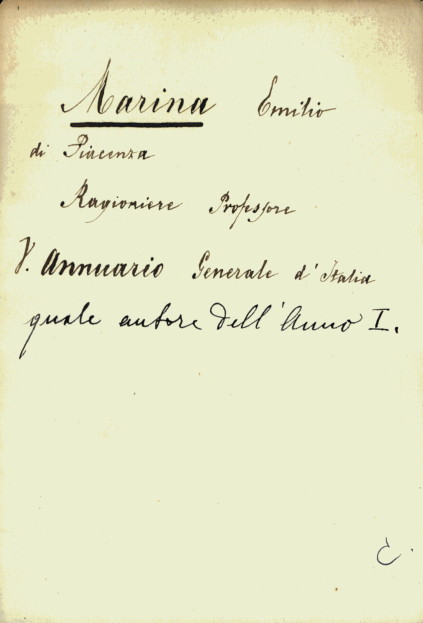 Marina Emilio
di Piacenza
Ragioniere Professore
V. Annuario Generale d'Italia
quale autore dell'Anno I.